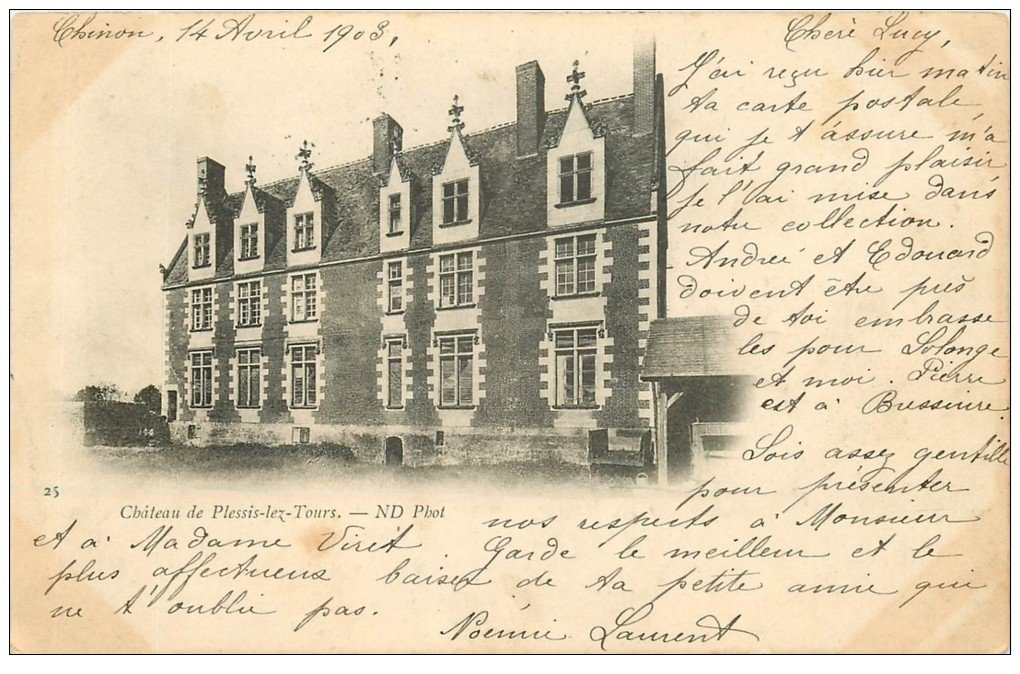 Chinon, 14 Avril 1903,
Chèré Lucy,
J'ai reçu hier matin
ta carte postale
qui je t'assure m'a
fait grand plaisir
je l'ai mise dans
notre collection.
Andreé et Edouard
doivent être près
de toi embrasse
les pour Solange
et moi. Pierre
est à Bressuire.
Sois assez gentille
pour présenter
25
Château de Plessis-lez-Tours. — ND Phot
nos respects à Monsieur
et à Madame Viret Garde le meilleur et le
plus affectueux baiser de ta petite amie qui
ne t'oublie pas.
Noémie Laurent